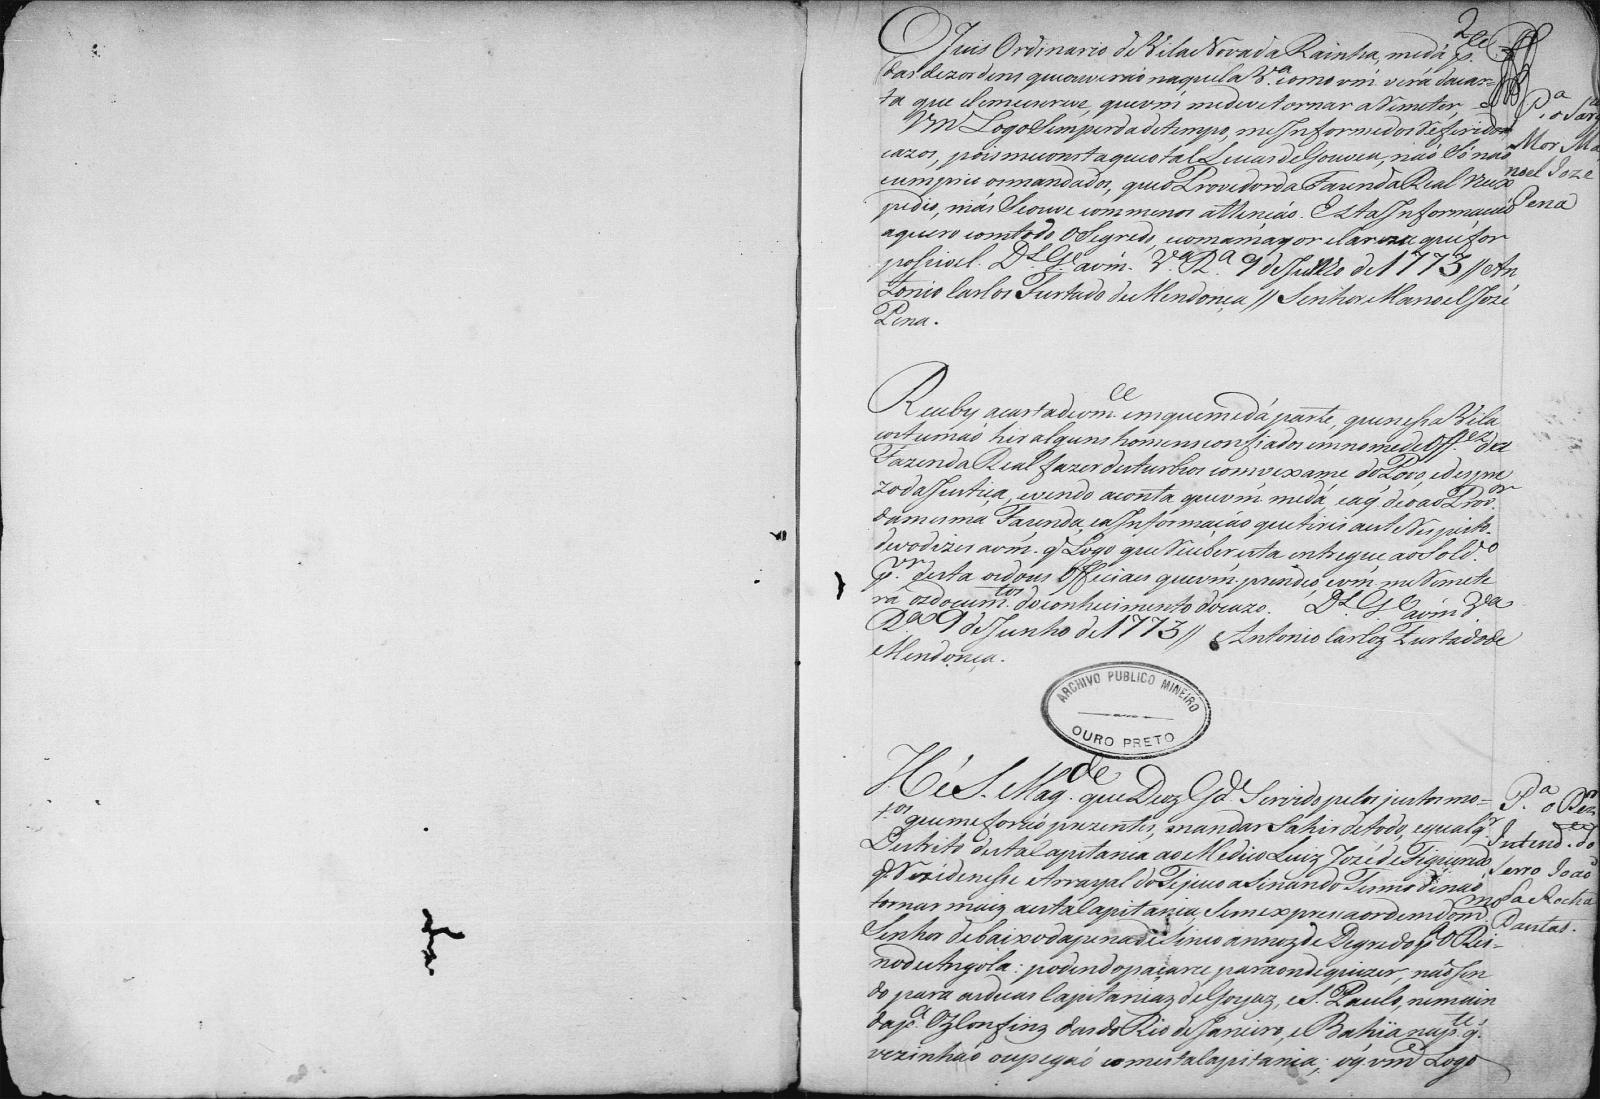 2
O Juis Ordinario de Vila Nova da Rainha, me dá p.te
das dezordens que ouverão naquela V.a como vm. verá da car-
ta que elle me escreve, que vm. me deve tornar a Remeter,
Vm. Logo Sem perda de tempo, me Informe dos Referidos
cazos, pois me consta que o tal Lucas de Gouvea, não Só não
cumprio os mandados, que o Provedor da Fazenda Real
pedio, más Se ouve com menos attenção. Esta Informação
a quero com todo o Segredo, e com a mayor clareza que for
possivel. D.s G.e a vm. V.a R.a 9 de Junho de 1773 // An
tonio Carlos Furtado de Mendonça // Senhor Manoel José
Pena.
P.a o Sarg.
Mor Ma
noel Joze
Pena
Receby a carta de vm.ce em que me dá parte, que nessa Vila
costumão hir alguns homens confiados em nome de Off.es da
Fazenda Real fazer disturbios com vexame do Povo, e despre
zo da Justiça, e vendo a conta que vm. me dá, e a q' deo ao Prov.or
da mesma Fazenda, e a Informação que tirei a este Respeito.
devo dizer a vm. q' Logo que Receber esta entregue ao Sold.o
p.or desta os dous Officiaes que vm. prendeo, e vm. me Remete
rá os docum.tos do conhecimento do cazo. D.s G.e a vm. V.a
R.a 9 de Junho de 1773 // Antonio Carlos Furtado de
Mendonça.
ARCHIVO PUBLICO MINEIRO
OURO PRETO
Hé S. Mag.de que Deoz G.de Servido pelos justos mo-
t.os que me forão prezentes, mandar Sahir de todo, e qualq.r
Destrito desta Capitania ao Medico Luiz José de Figueiredo
q' Rezide nesse Arrayal do Tejuco asinando Termo de não
tornar mais a esta Capitania, Sem expresa ordem do m.mo
Senhor debaixo da pena de Sinco annoz de Degredo p.a o Rei-
no de Angola: podendo pasarce para onde quizer, não Sen
do para as duas Capitaniaz de Goyaz, e S. Paulo, nem ain
da p.a os Confinz das do Rio de Janeiro, e Bahia na p.te q'
vezinhão ou pegão com esta Capitania; o q' vm.ce Logo
P.a o Dez.or
Intend.e do
Serro João
da Rocha
Dantas.